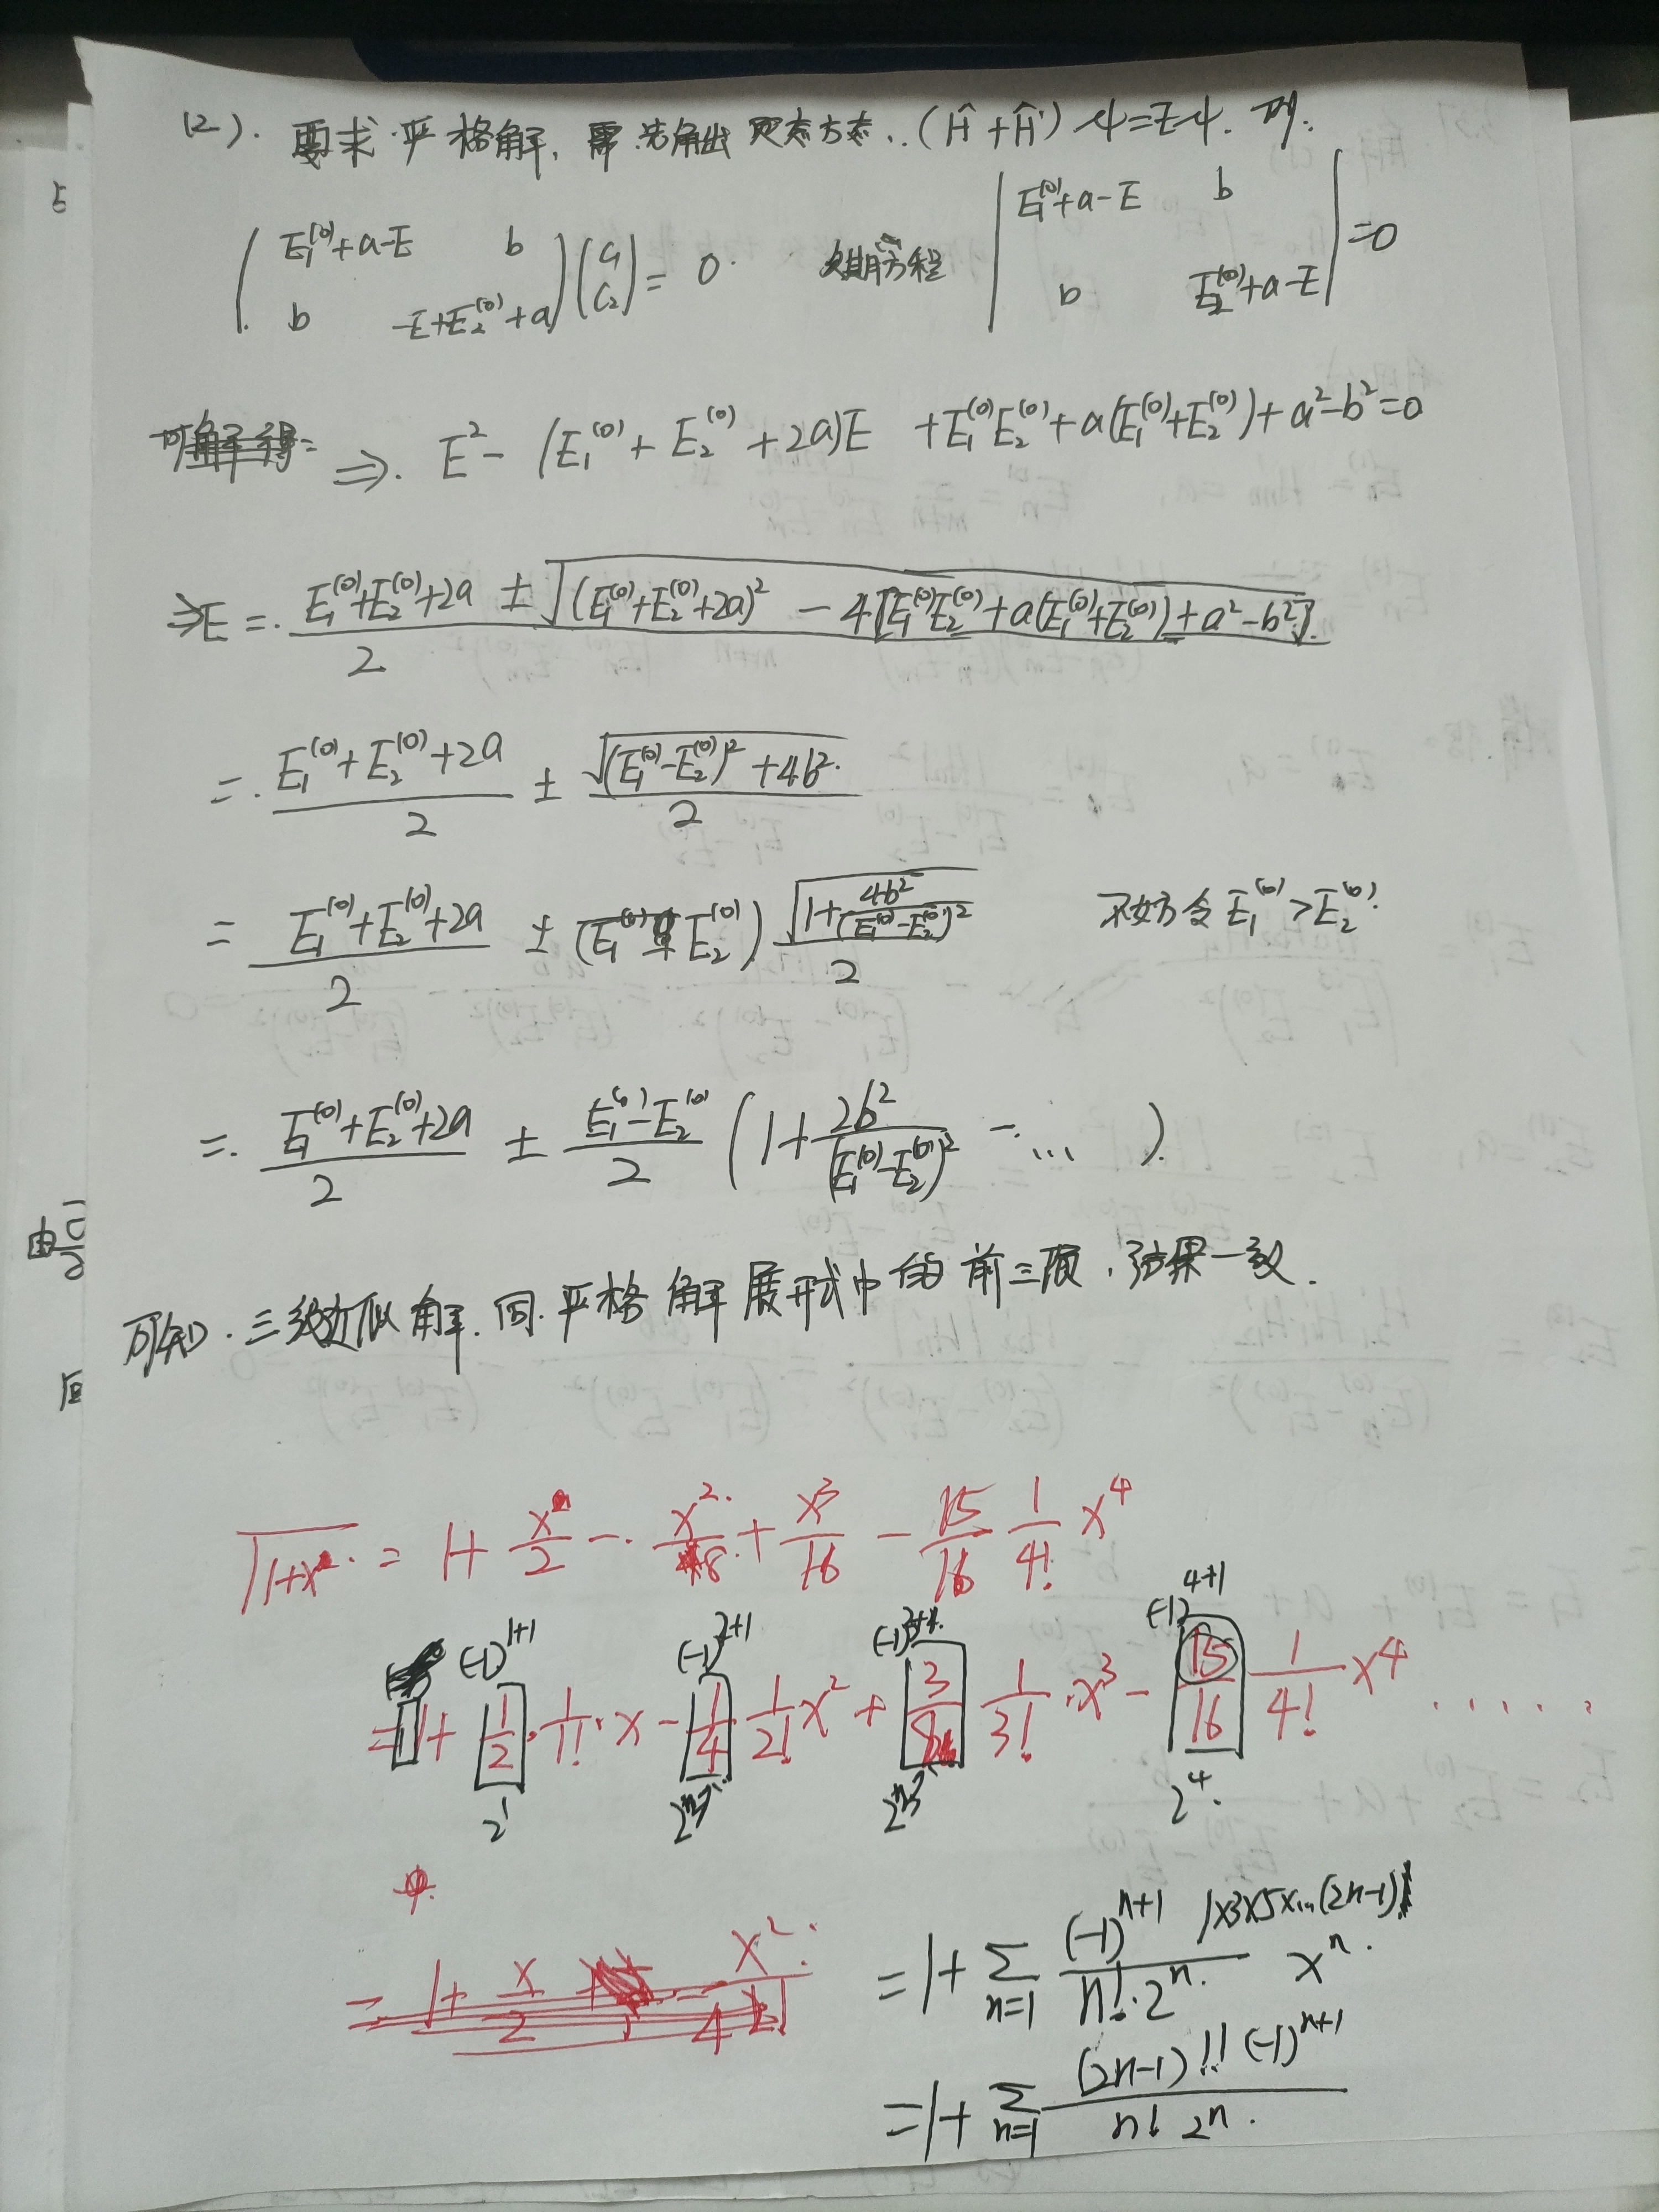 (2). 要求严格解, 需先解出定态方态. (Ĥ+Ĥ')ψ=Eψ. 则:
( E₁⁽⁰⁾+a-E b ; b -E+E₂⁽⁰⁾+a ) ( C₁ ; C₂ ) = 0. 久期方程 | E₁⁽⁰⁾+a-E b ; b E₂⁽⁰⁾+a-E | =0
⇒. E² - (E₁⁽⁰⁾+E₂⁽⁰⁾+2a)E +E₁⁽⁰⁾E₂⁽⁰⁾+a(E₁⁽⁰⁾+E₂⁽⁰⁾)+a²-b²=0
⇒E =. (E₁⁽⁰⁾+E₂⁽⁰⁾+2a ± √((E₁⁽⁰⁾+E₂⁽⁰⁾+2a)² - 4[E₁⁽⁰⁾E₂⁽⁰⁾+a(E₁⁽⁰⁾+E₂⁽⁰⁾)+a²-b²]))/2
=. (E₁⁽⁰⁾+E₂⁽⁰⁾+2a)/2 ± √((E₁⁽⁰⁾-E₂⁽⁰⁾)²+4b²)/2
= (E₁⁽⁰⁾+E₂⁽⁰⁾+2a)/2 ± (E₁⁽⁰⁾-E₂⁽⁰⁾) √(1+4b²/(E₁⁽⁰⁾-E₂⁽⁰⁾)²)/2 不妨令E₁⁽⁰⁾>E₂⁽⁰⁾.
=. (E₁⁽⁰⁾+E₂⁽⁰⁾+2a)/2 ± (E₁⁽⁰⁾-E₂⁽⁰⁾)/2 (1+2b²/(E₁⁽⁰⁾-E₂⁽⁰⁾)² -... ).
可知. 三级近似解. 同. 严格解展开式中的前三项, 结果一致.
√(1+x) = 1+ x/2 - x²/8 + x³/16 - 15/16 1/4! x⁴
(-1)¹⁺¹ (-1)²⁺¹ (-1)³⁺¹ (-1)⁴⁺¹
=1+ 1/2 · 1/1! · x - 1/4 1/2! x² + 3/8 1/3! · x³ - 15/16 1/4! x⁴ ......
2¹ 2² 2³ 2⁴.
= 1+∑n=1 (-1)ⁿ⁺¹ 1×3×5×...(2n-1)/(n!·2ⁿ) xⁿ.
=1+∑n=1 (2n-1)!! (-1)ⁿ⁺¹/(n! 2ⁿ).